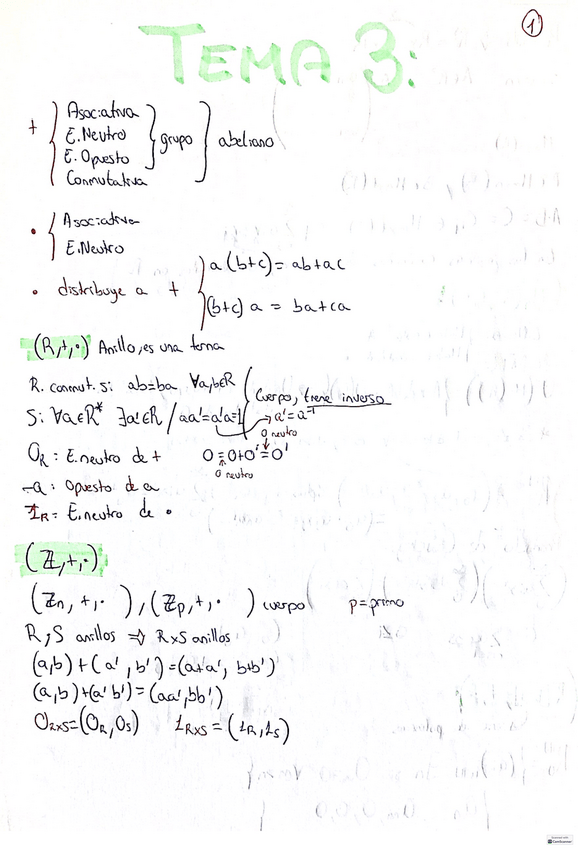 1
TEMA 3:
+ { Asociativa
E. Neutro
E. Opuesto } grupo } abeliano
Conmutativa
• { Asociativa
E. Neutro
• distribuye a + } a(b+c) = ab+ac
(b+c) a = ba+ca
(R,+,•) Anillo, es una terna
R. conmut. si ab=ba ∀a,b∈R
Si ∀a∈R* ∃a'∈R / aa'=a'a=1 } Cuerpo, tiene inverso
→ a'=a⁻¹
0 neutro
O_R : E. neutro de + 0 = 0+0' = 0'
0 neutro
-a : Opuesto de a
1_R = E. neutro de •
(ℤ,+,•)
(ℤn, +,•), (ℤp,+,• ) cuerpo p=primo
R,S anillos ⇒ RxS anillos
(a,b)+(a',b')=(a+a', b+b')
(a,b)+(a' b')=(aa',bb')
O_RxS=(O_R,O_S) 1_RxS=(1_R,1_S)
CamScanner